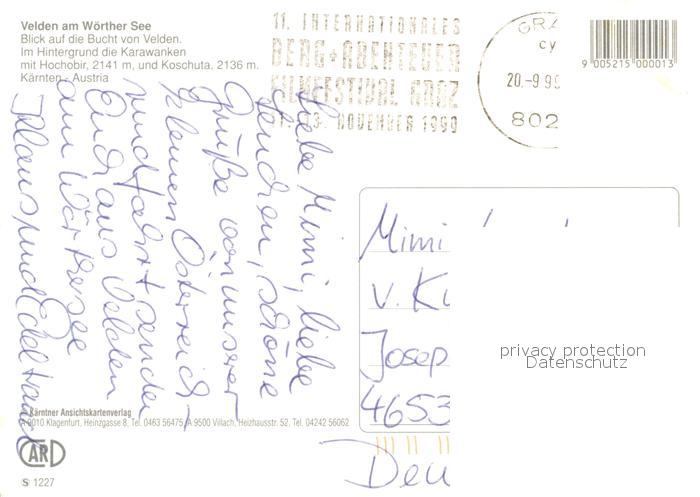 Velden am Wörther See
Blick auf die Bucht von Velden.
Im Hintergrund die Karawanken
mit Hochobir, 2141 m, und Koschuta, 2136 m.
Kärnten, Austria
11. INTERNATIONALES
BERG+ABENTEUER
FILMFESTIVAL GRAZ
NOVEMBER 1999
GRA
cy
20.-9.99
802
9 005215 000013
Liebe Mimi, liebe
schöne
Grüße von unserer
kleinen Österreich-
rundfahrt senden
Euch aus Velden
am Wörthersee
Klaus und Edeltraud
Mimi
v. Kl
Josep
4653
Deu
privacy protection
Datenschutz
Kärntner Ansichtskartenverlag
A 9010 Klagenfurt, Heinzgasse 8, Tel. 0463 56475, A 9500 Villach, Heizhausstr. 52, Tel. 04242 56062
CARD
S 1227